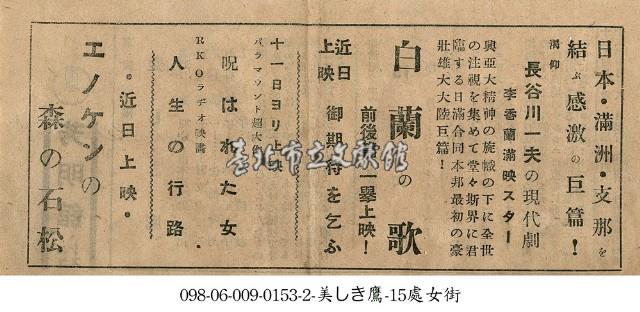 日本・滿洲・支那を
結ぶ感激の巨篇！
渴仰
長谷川一夫の現代劇
李香蘭滿映スター
興亞大精神の旗幟の下に全世
の注視を集めて堂々斯界に君
臨する日滿合同本邦最初の豪
壯雄大大陸巨篇！
白蘭の歌
前後 一擧上映！
近日
上映
御期待を乞ふ
十一日ヨリ上映
パラマウント超大
呪はれた女
RKOラヂオ映畫
人生の行路
・近日上映・
エノケンの
森の石松
臺北市立文獻館
098-06-009-0153-2-美しき鷹-15處女街